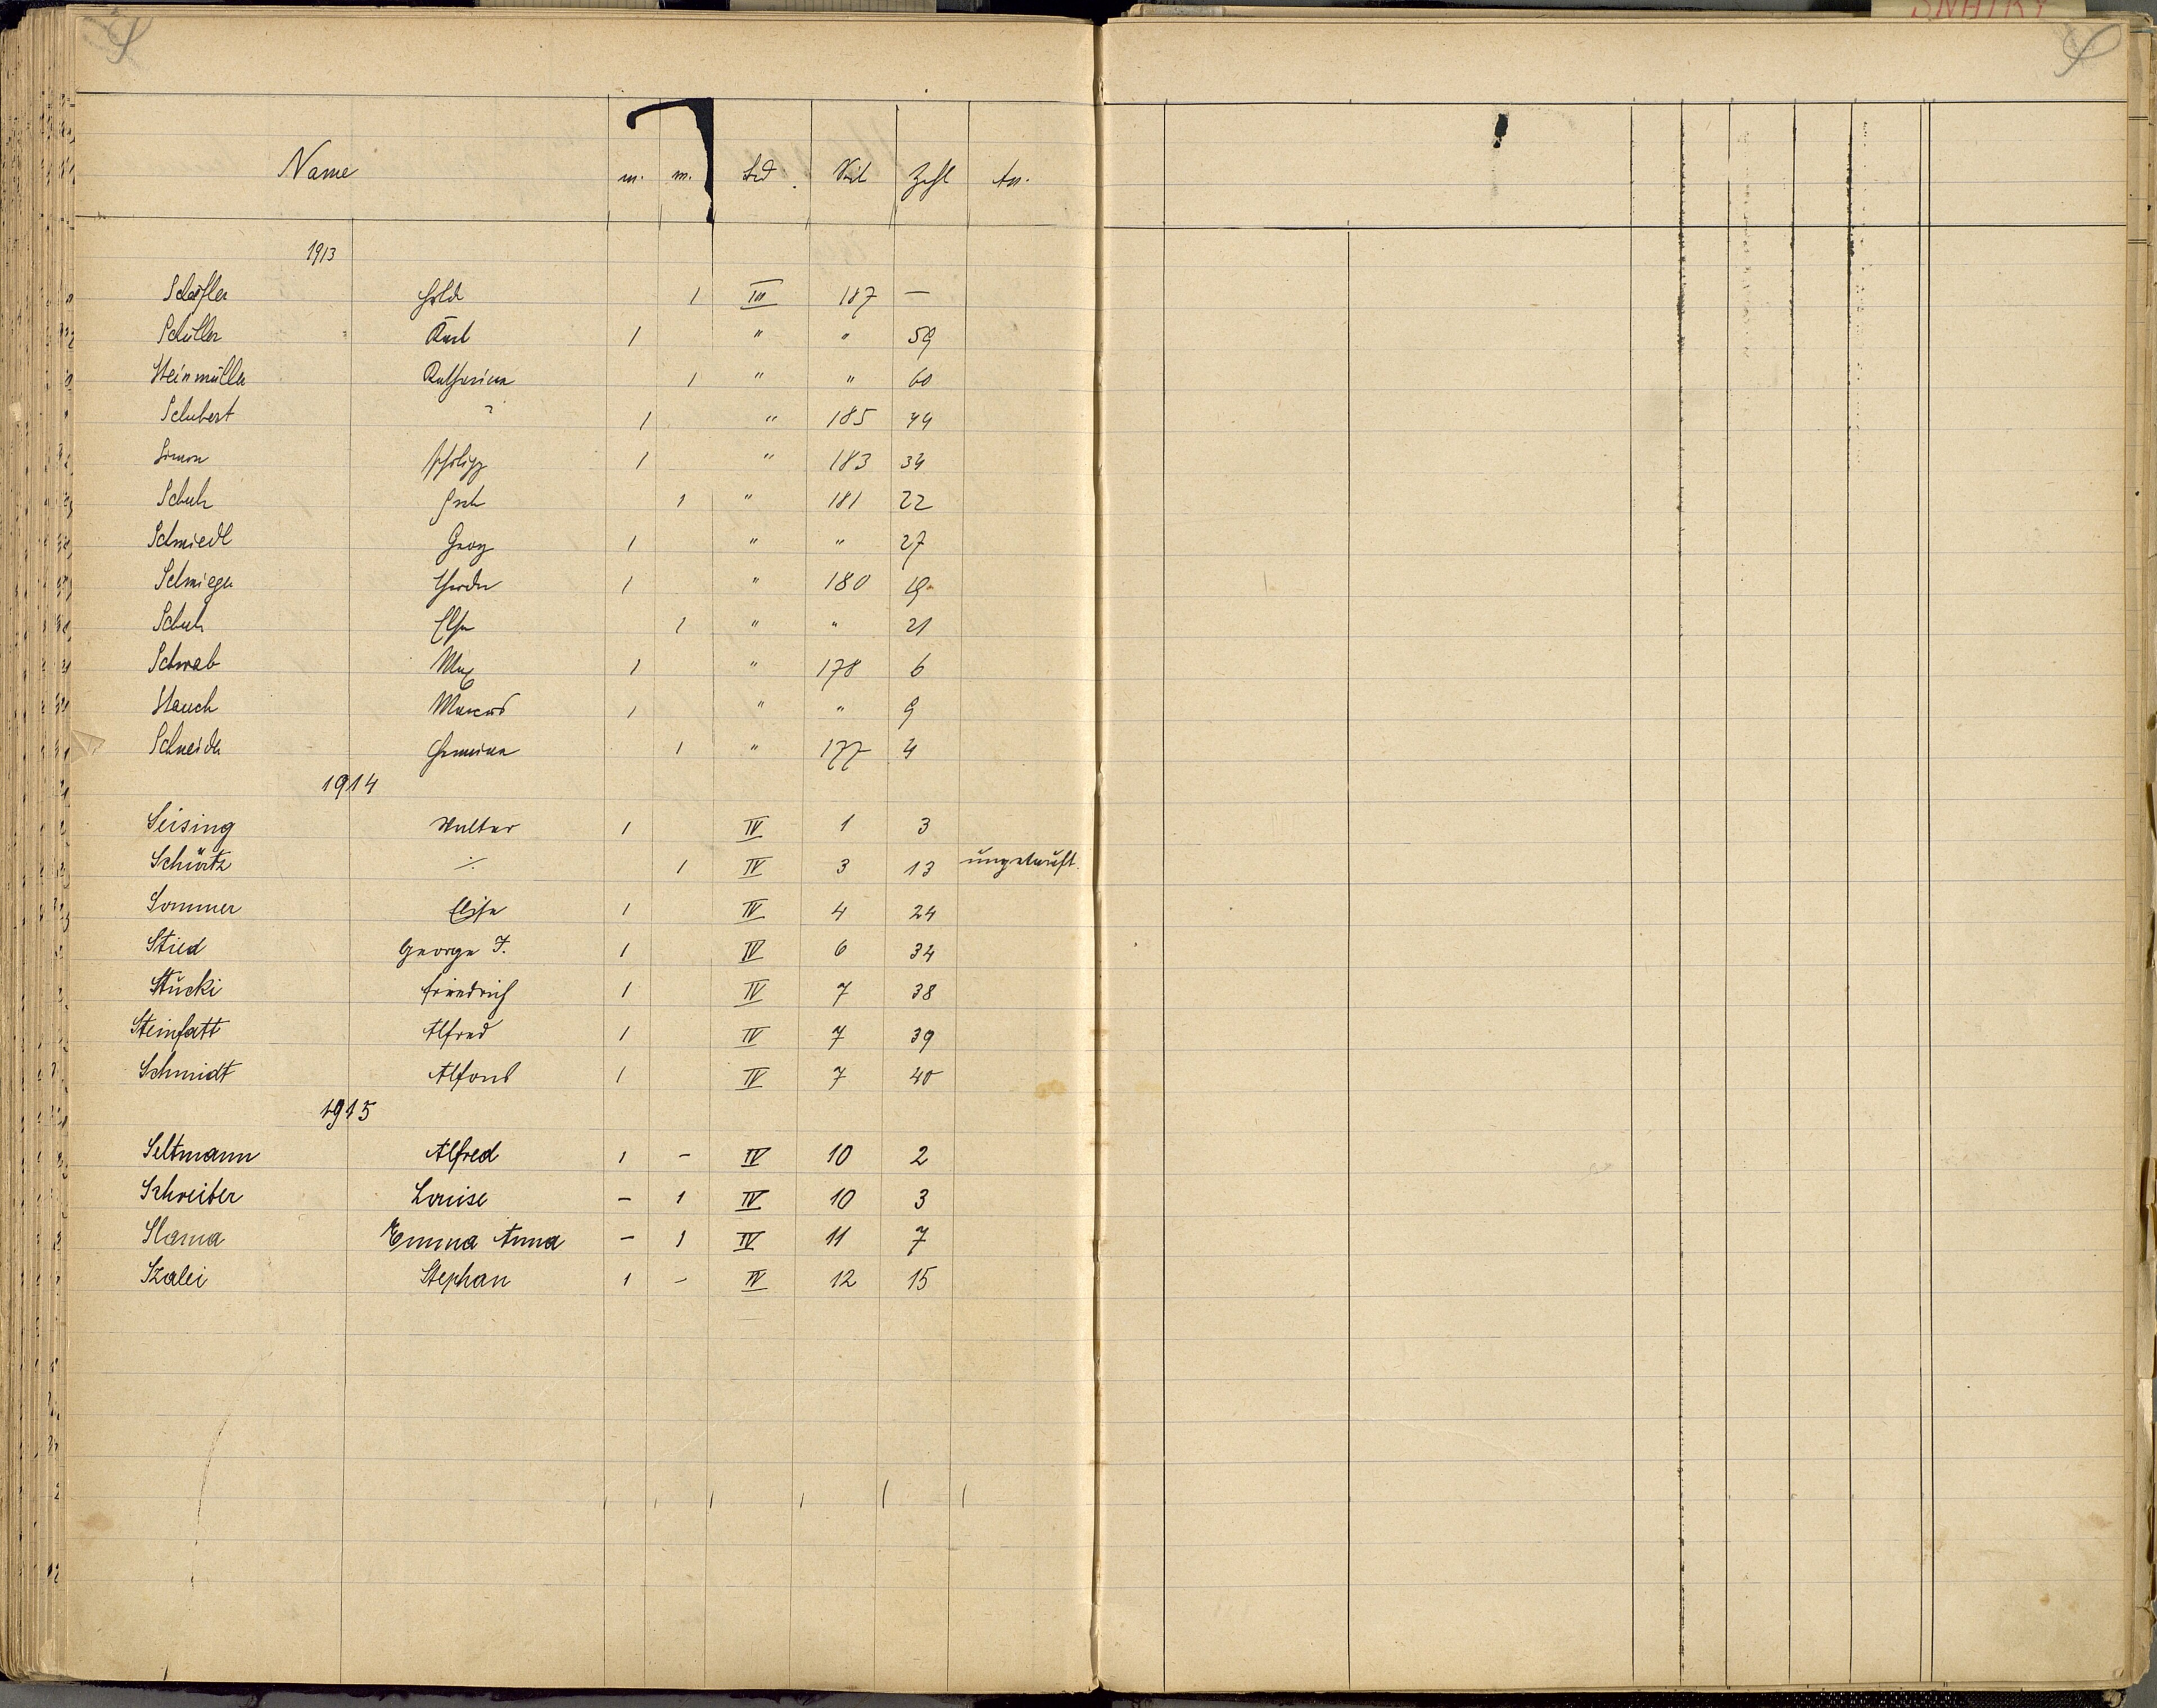 S S
Name m. w. Bd. Seit Zahl An.
1913
Schöfler 1 III 187 —
Schüller Karl 1 " " 59
Steinmüller Katharina 1 " " 60
Schubert ? 1 " 185 44
Simon Philipp 1 " 183 34
Schuh 1 " 181 22
Schmiedl Georg 1 " " 27
Schmieger 1 " 180 19
Schuh Elsa 1 " " 21
Schwab Max 1 " 178 6
Stauch Marcus 1 " " 9
Schneider Hermina 1 " 177 4
1914
Seising Walter 1 IV 1 3
Schürtz ./. 1 IV 3 13 ungetauft.
Sommer Elisa 1 IV 4 24
Stied George F. 1 IV 6 34
Stucki Friedrich 1 IV 7 38
Steinfatt Alfred 1 IV 7 39
Schmidt Alfons 1 IV 7 40
1915
Seltmann Alfred 1 - IV 10 2
Schreiber Louise - 1 IV 10 3
Slama Emma Anna - 1 IV 11 7
Szalei Stephan 1 - IV 12 15